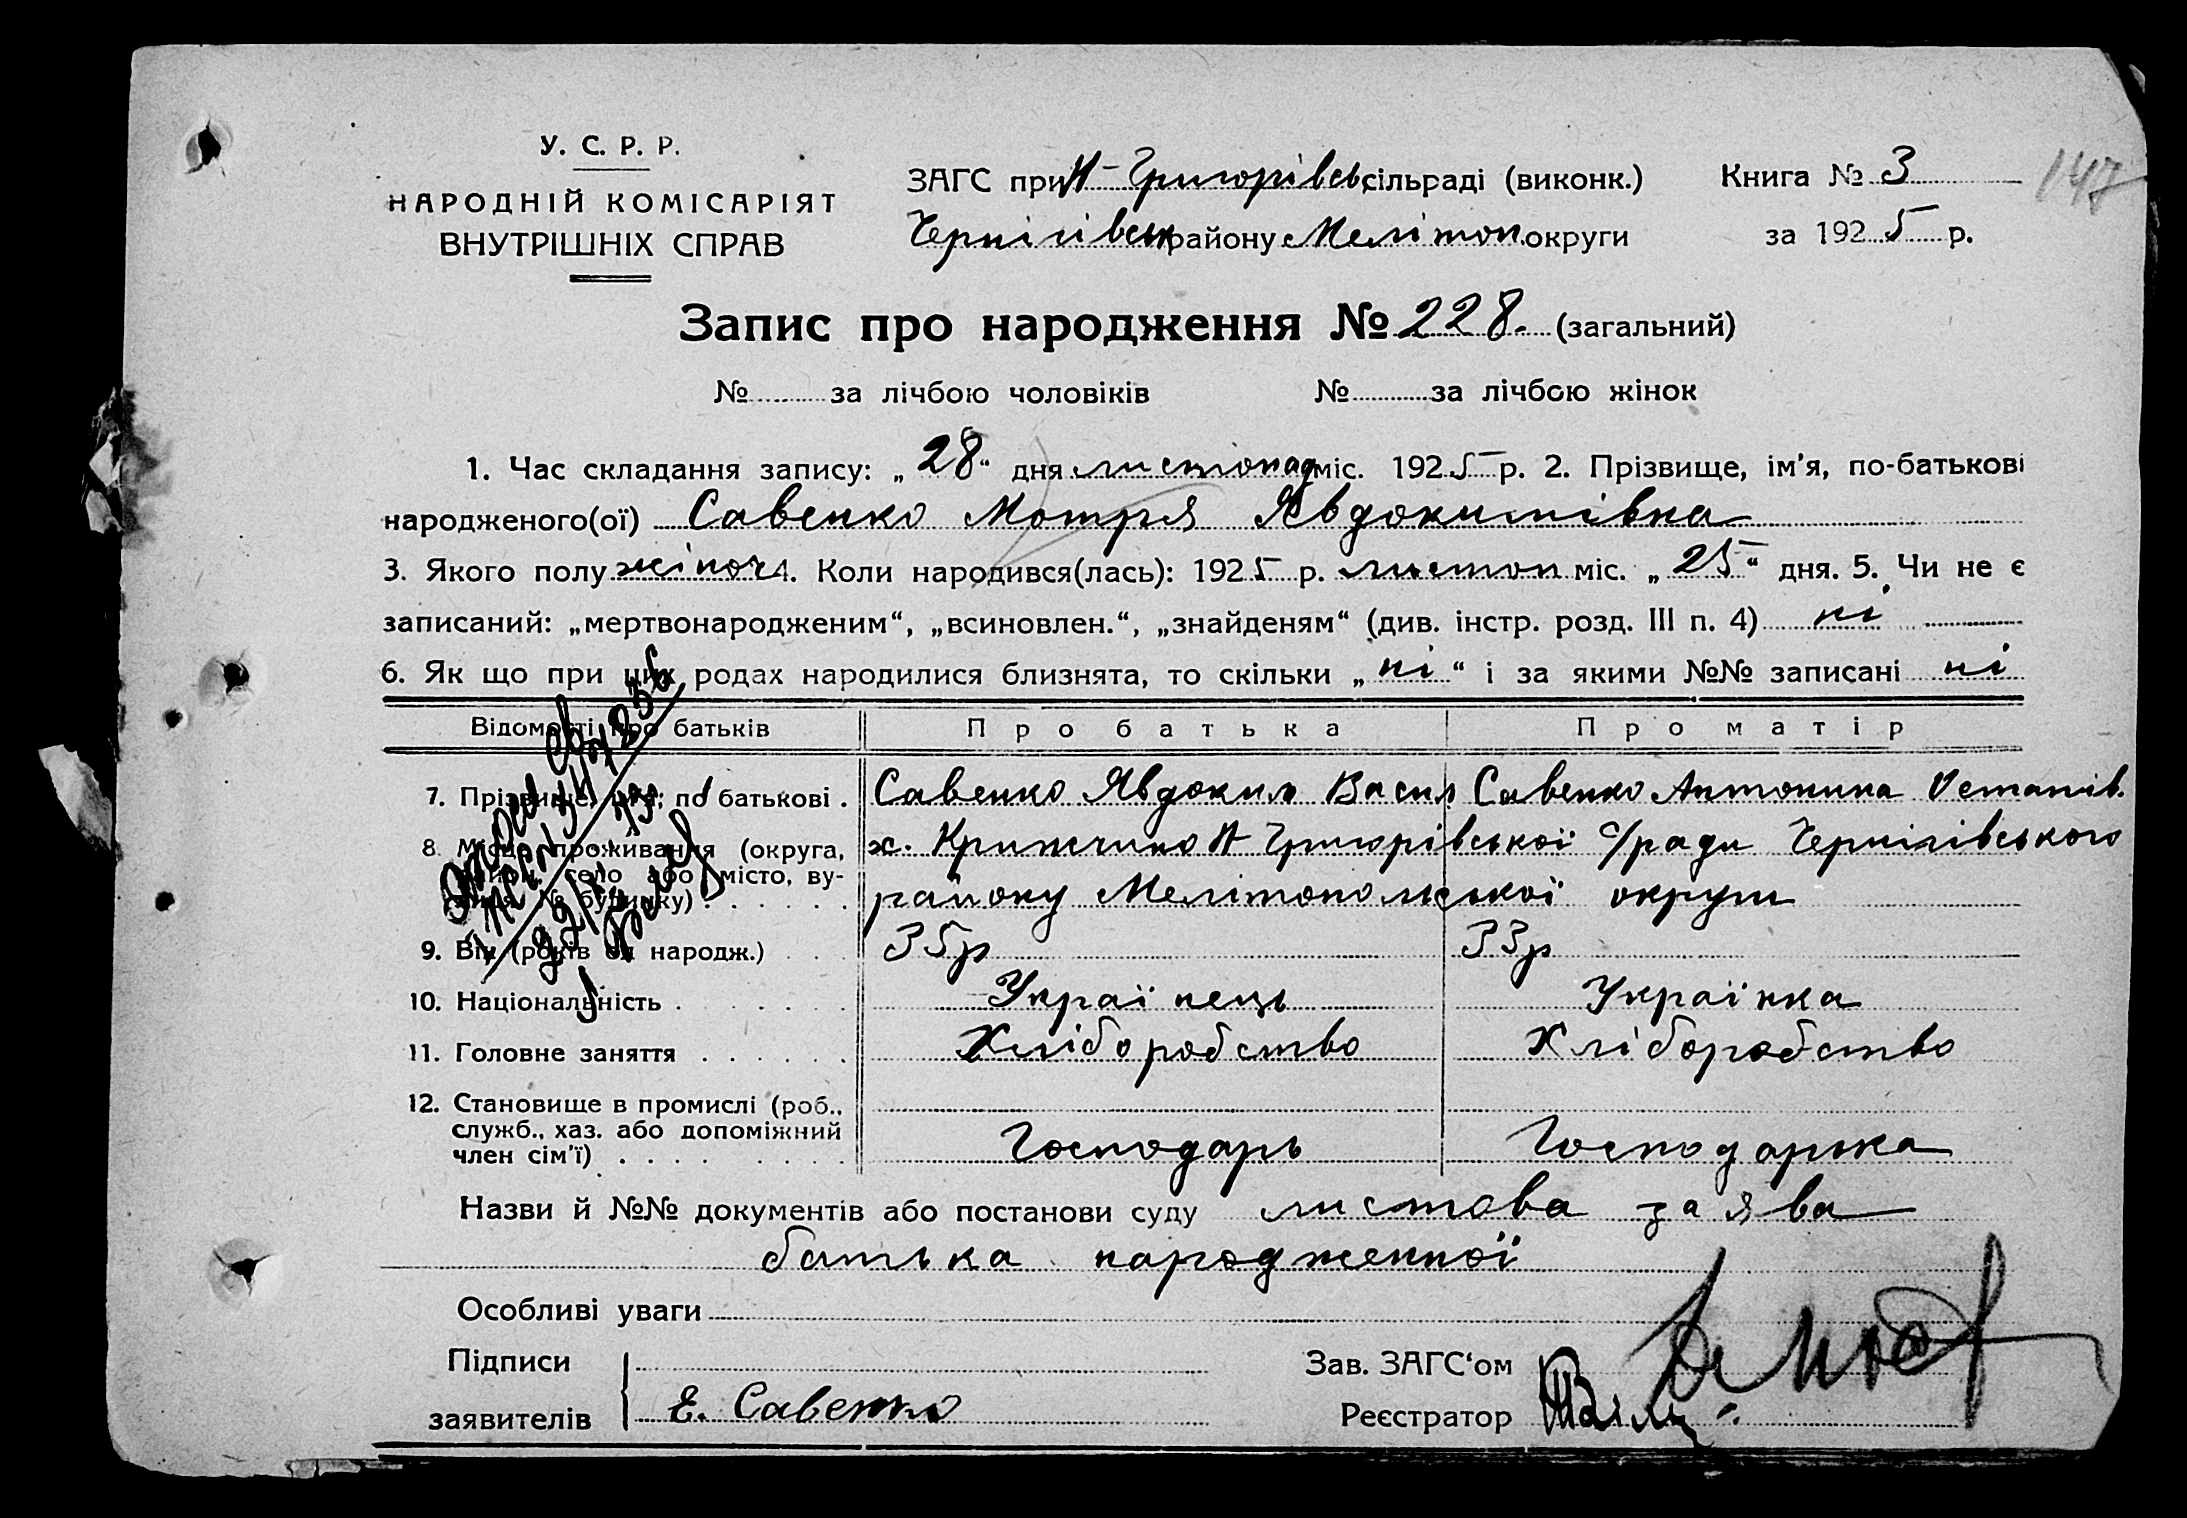 У. С. Р. Р.
НАРОДНІЙ КОМІСАРІЯТ
ВНУТРІШНІХ СПРАВ
ЗАГС при Н-Григорівськ сільраді (виконк.)
Чернігівськ району Мелітоп. округи
Книга № 3
за 1925 р.
147
Запис про народження № 228. (загальний)
№ за лічбою чоловіків № за лічбою жінок
1. Час складання запису: „28“ дня листопад міс. 1925 р. 2. Прізвище, ім’я, по-батькові
народженого(ої) Савенко Мотря Явдокимівна
3. Якого полу жіноч 4. Коли народився(лась): 1925 р. листоп міс. „25“ дня. 5. Чи не є
записаний: „мертвонародженим“, „всиновлен.“, „знайденям“ (див. інстр. розд. III п. 4) ні
6. Як що при цих родах народилися близнята, то скільки „ні“ і за якими №№ записані ні
Відомості про батьків Про батька Про матір
7. Прізвище, ім’я, по батькові . Савенко Явдоким Васил Савенко Антонина Остапів.
8. Місце проживання (округа,
район, село або місто, ву-
лиця, № будинку) . . . . . .
х. Крижчино Н Григорівської с/ради Чернігівського
району Мелітопольської округи
9. Вік (років від народж.) . . . 35р 33р
10. Національність . . . . . . . Українець Українка
11. Головне заняття . . . . . . Хліборобство Хліборобство
12. Становище в промислі (роб.,
служб., хаз. або допоміжний
член сім’ї) . . . . . . . . Господарь Господарка
Назви й №№ документів або постанови суду листова заява
батька народженної
Особливі уваги
Підписи
заявителів Е. Савенко
Зав. ЗАГС‘ом
Реєстратор